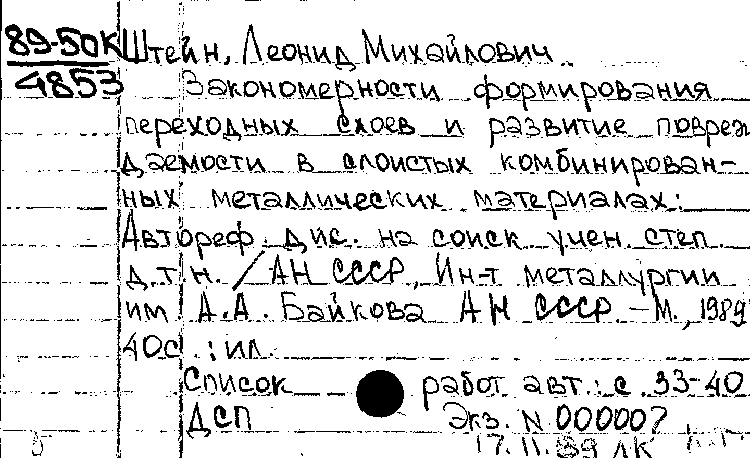 89-50К Штейн, Леонид Михайлович
4853 Закономерности формирования
переходных слоев и развитие повреж
даемости в слоистых комбинирован-
ных металлических материалах:
Автореф. дис. на соиск учен. степ.
д.т.н. / АН СССР, Ин-т металлургии
им А.А. Байкова АН СССР. - М., 1989
40с. : ил.
Список работ авт.: с. 33-40
ДСП Экз. N 000007
17.11.89 ЛК